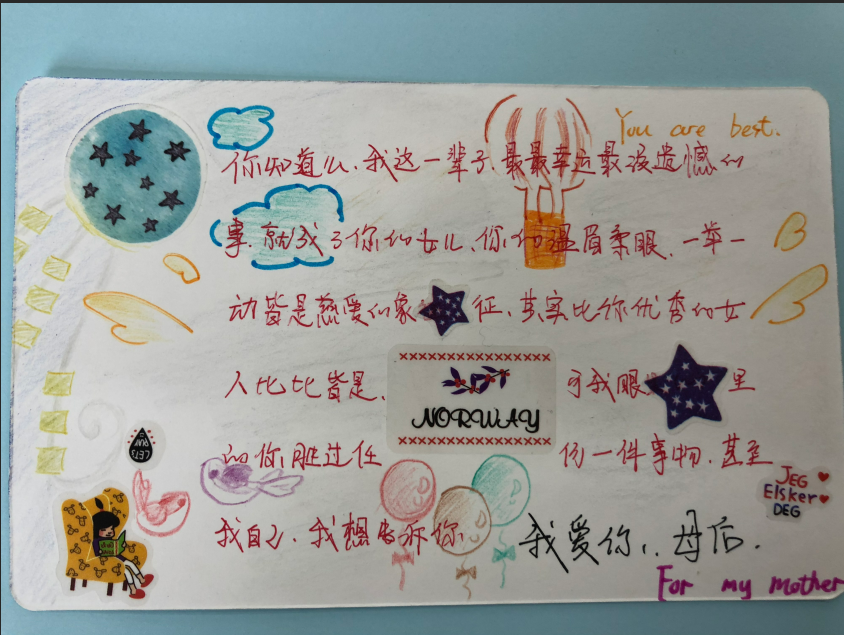 You are best.
你知道么,我这一辈子,最最幸运最没遗憾的
事,就我了你的女儿,你的温眉柔眼,一举一
动皆是慈爱的象征,其实比你优秀的女
人比比皆是,
NORWAY
可我眼里
的你,胜过任
何一件事物,甚至
LET'S
PLAY
JEG
Elsker
DEG
我自己,我想告诉你,
我爱你,母后.
For my mother